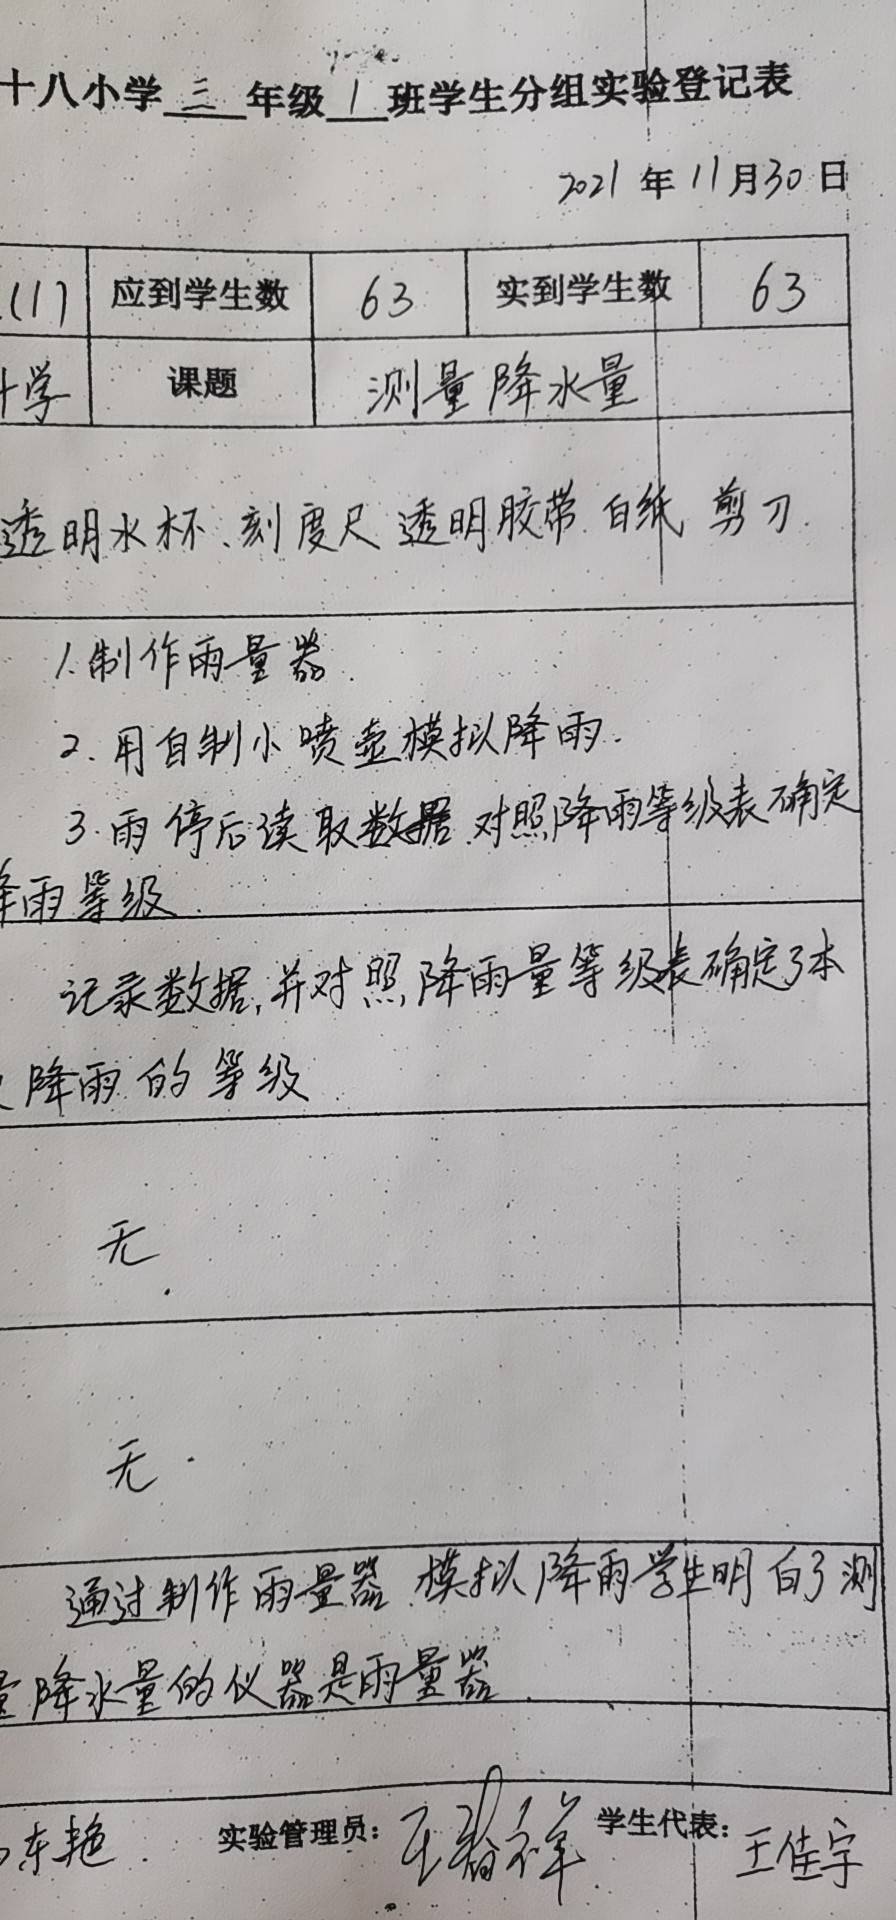 十八小学 三 年级 1 班学生分组实验登记表
2021 年 11 月 30 日
(1) 应到学生数 63 实到学生数 63
学 课题 测量降水量
透明水杯、刻度尺 透明胶带 白纸 剪刀.
1. 制作雨量器.
2. 用自制小喷壶模拟降雨.
3. 雨停后读取数据.对照降雨等级表确定
降雨等级.
记录数据,并对照降雨量等级表确定了本
降雨的等级
无.
无.
通过制作雨量器.模拟降雨学生明白了测
量降水量的仪器是雨量器.
东艳 实验管理员: 学生代表: 王佳宇